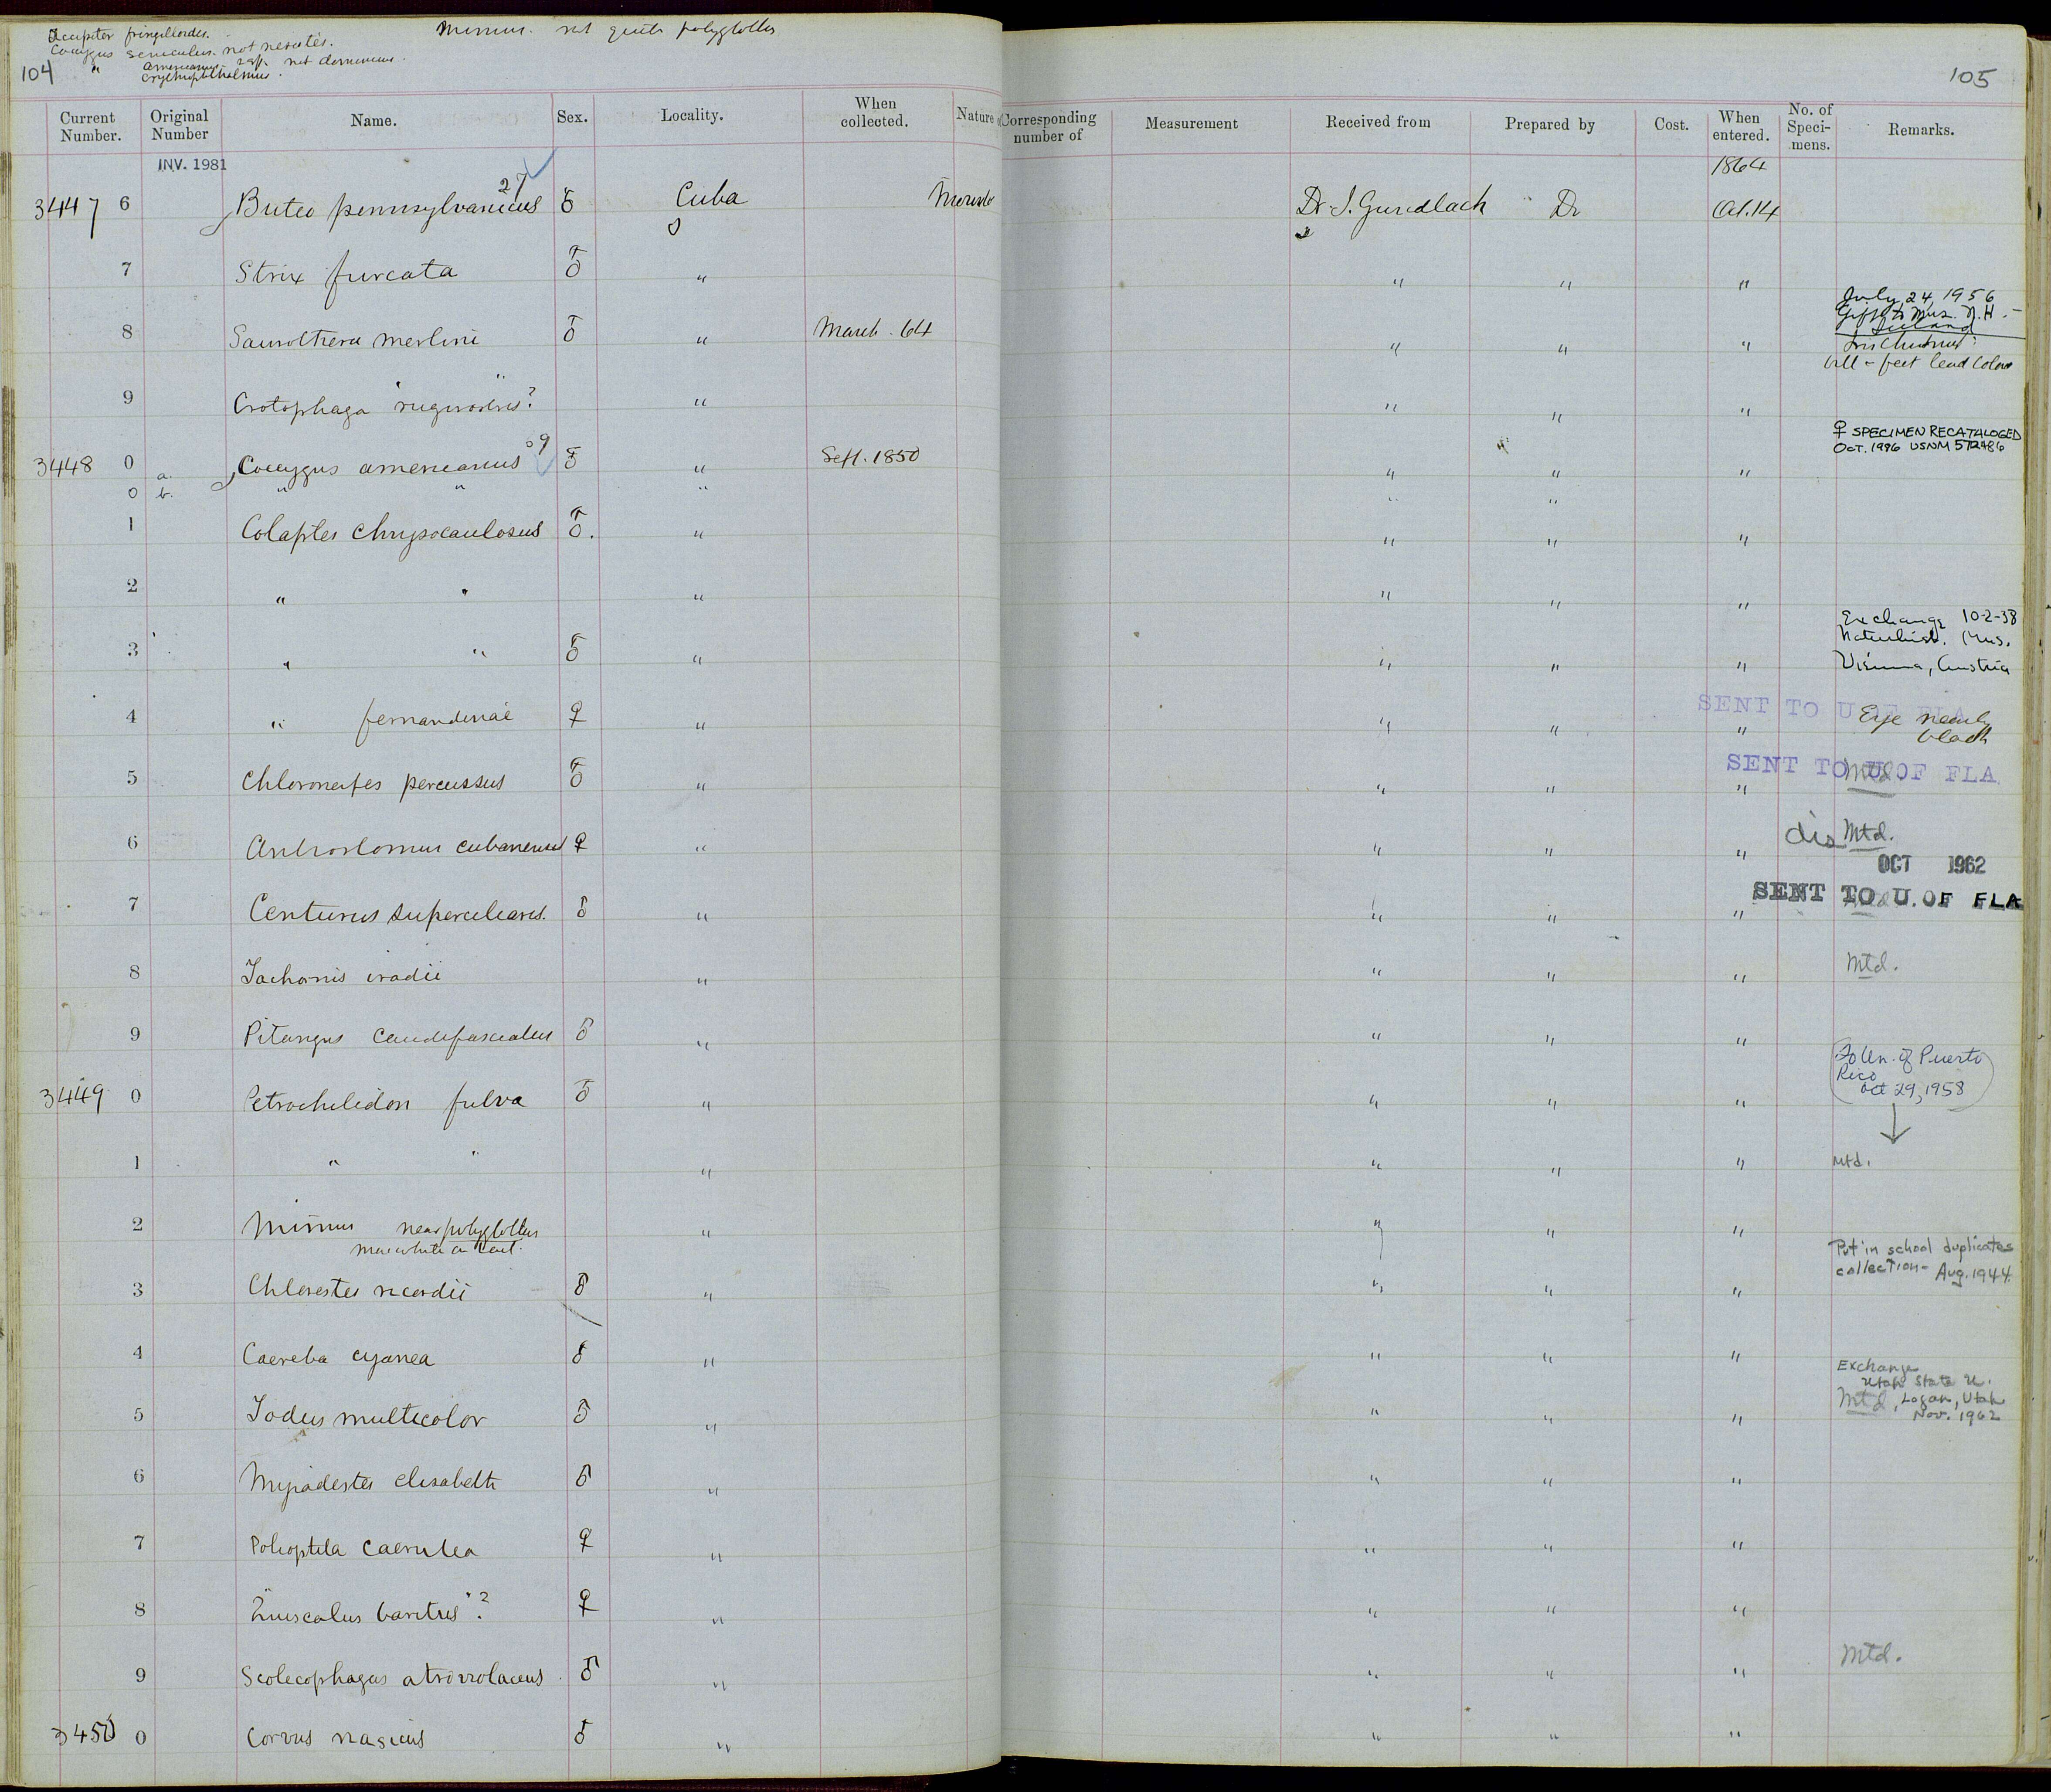 Accipiter fringilloides.
Coccygus seniculus. not nesiotes.
" americanus - not dominicus.
erythrophthalmus.
Mimus. not quite polyglottus
104
105
Current Number. Original Number Name. Sex. Locality. When collected. Nature Corresponding number of Measurement Received from Prepared by Cost. When entered. No. of Specimens. Remarks.
INV. 1981
1864
3447 6 Buteo pennsylvanicus 27 ♂ Cuba Mounted Dr. J. Gundlach Dr Oct. 14
7 Strix furcata ♂ " " " "
July 24, 1956
Gift to Mus. N.H. -
Iceland
8 Saurothera merlini ♂ " March. 64 " " " Iris Chestnut:
bill - feet lead color
9 Crotophaga "rugirostris"? " " " "
♀ SPECIMEN RECATALOGED
OCT. 1996 USNM 572486
3448 0 a. Coccygus americanus ♂♀ ♂ " Sept. 1850 " " "
0 b. " " " " "
1 Colaptes chrysocaulosus ♂. " " " "
2 " " " " " "
Exchange 10-2-38
Naturhist. Mus.
3 " " ♂ " " " " Vienna, Austria
SENT TO U OF FLA
4 " fernandinae ♀ " " " " Eye nearly
black
SENT TO U OF FLA
5 Chloronerpes percussus ♂ " " " " Mtd.
6 Antrostomus cubanensis ♀ " " " " dis Mtd.
OCT 1962
SENT TO U. OF FLA
7 Centurus superciliaris. ♂ " " " " Mtd
8 Tachornis iradii " " " " Mtd.
9 Pitangus caudifasciatus ♂ " " " "
To Un. of Puerto
Rico
Oct 29, 1958
3449 0 Petrochelidon fulva ♂ " " " "
1 " " " " " " Mtd.
2 Mimus near polyglottus " " " "
more white on tail.
Put in school duplicates
collection - Aug. 1944
3 Chlorestes ricordii ♂ " " " "
4 Caereba cyanea ♂ " " " "
Exchange
Utah State U.
Mtd, Logan, Utah
Nov. 1962
5 Todus multicolor ♂ " " " "
6 Myiadestes elisabeth ♂ " " " "
7 Polioptila caerulea ♀ " " " "
8 "Quiscalus baritus"? ♀ " " " "
9 Scolecophagus atroviolaceus ♂ " " " " Mtd.
3450 0 Corvus nasicus ♂ " " " "